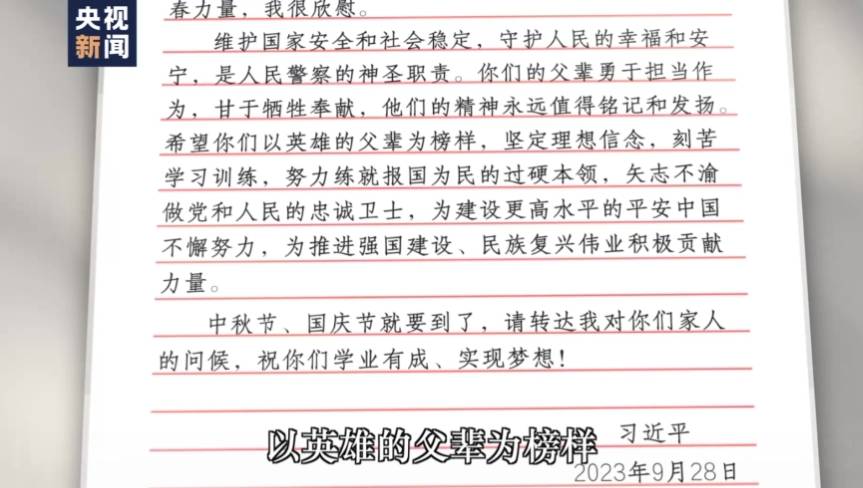 央视
新闻
春力量，我很欣慰。
维护国家安全和社会稳定，守护人民的幸福和安
宁，是人民警察的神圣职责。你们的父辈勇于担当作
为，甘于牺牲奉献，他们的精神永远值得铭记和发扬。
希望你们以英雄的父辈为榜样，坚定理想信念，刻苦
学习训练，努力练就报国为民的过硬本领，矢志不渝
做党和人民的忠诚卫士，为建设更高水平的平安中国
不懈努力，为推进强国建设、民族复兴伟业积极贡献
力量。
中秋节、国庆节就要到了，请转达我对你们家人
的问候，祝你们学业有成、实现梦想！
习近平
2023年9月28日
以英雄的父辈为榜样